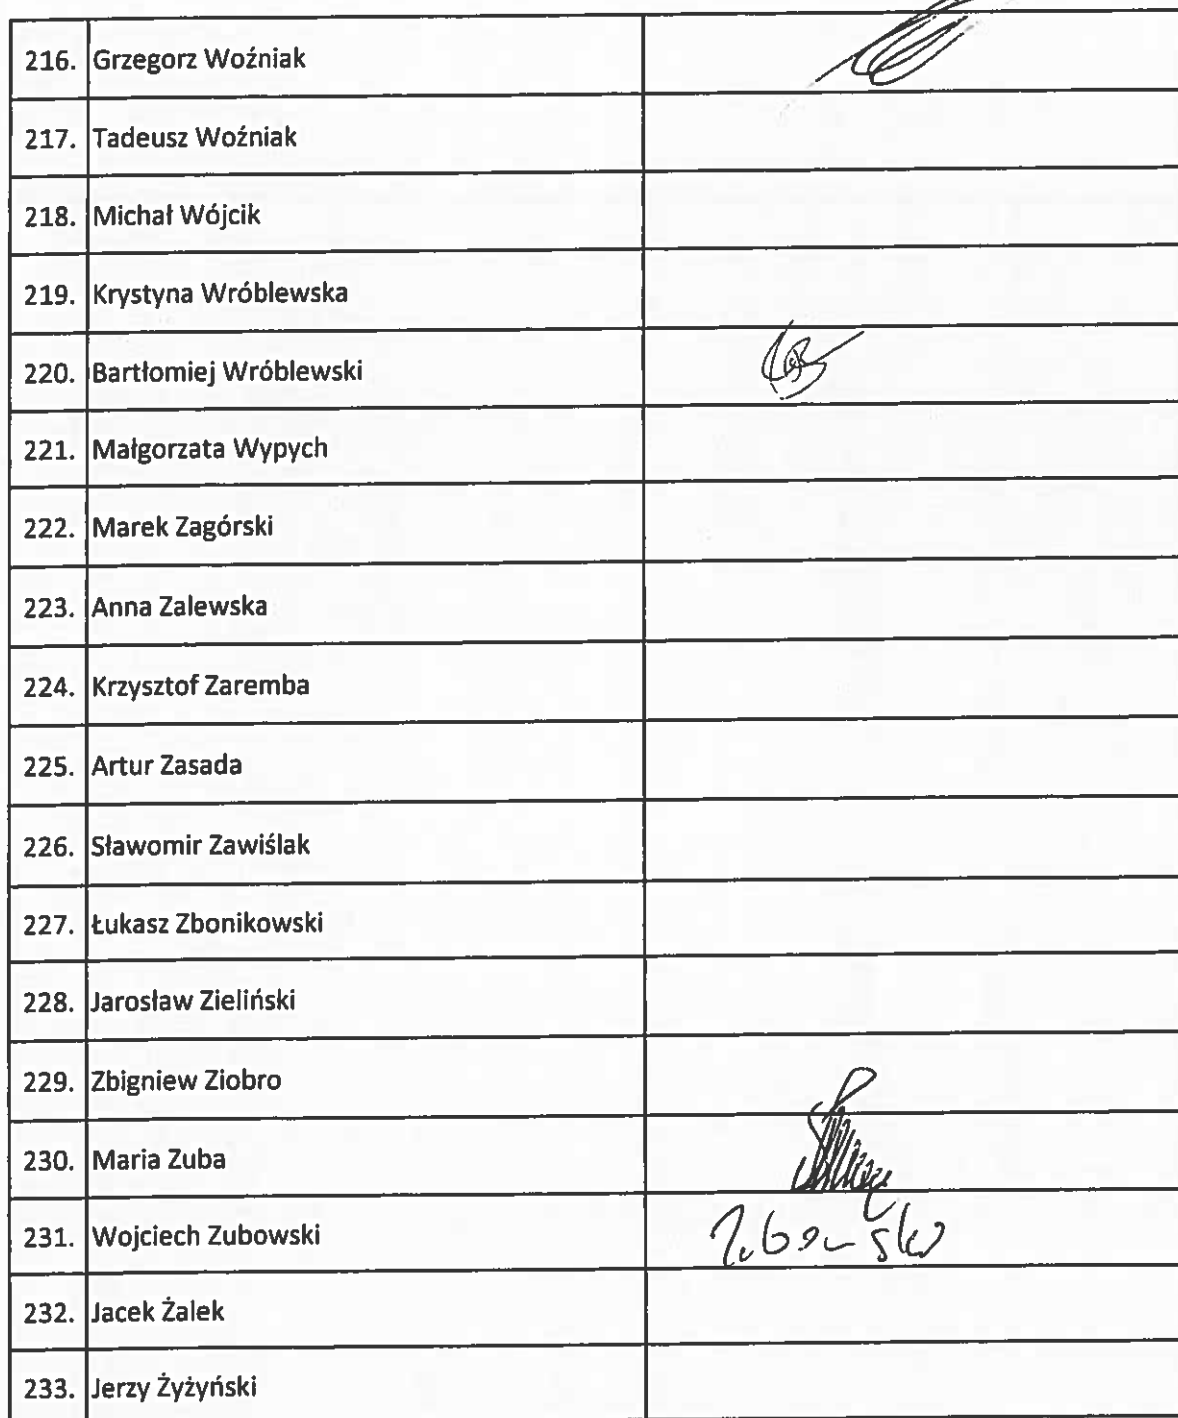 216. Grzegorz Woźniak
217. Tadeusz Woźniak
218. Michał Wójcik
219. Krystyna Wróblewska
220. Bartłomiej Wróblewski
221. Małgorzata Wypych
222. Marek Zagórski
223. Anna Zalewska
224. Krzysztof Zaremba
225. Artur Zasada
226. Sławomir Zawiślak
227. Łukasz Zbonikowski
228. Jarosław Zieliński
229. Zbigniew Ziobro
230. Maria Zuba
231. Wojciech Zubowski
232. Jacek Żalek
233. Jerzy Żyżyński